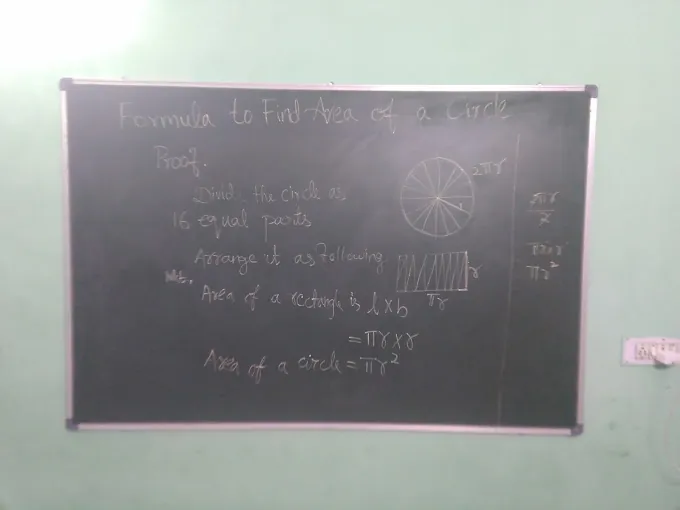 Formula to Find Area of a Circle
Proof.
Divide the circle as
16 equal parts
2πr
Arrange it as following
r
πr
Area of a rectangle is l×b
= πr×r
Area of a circle = πr²
2πr
2
πr×r
πr²